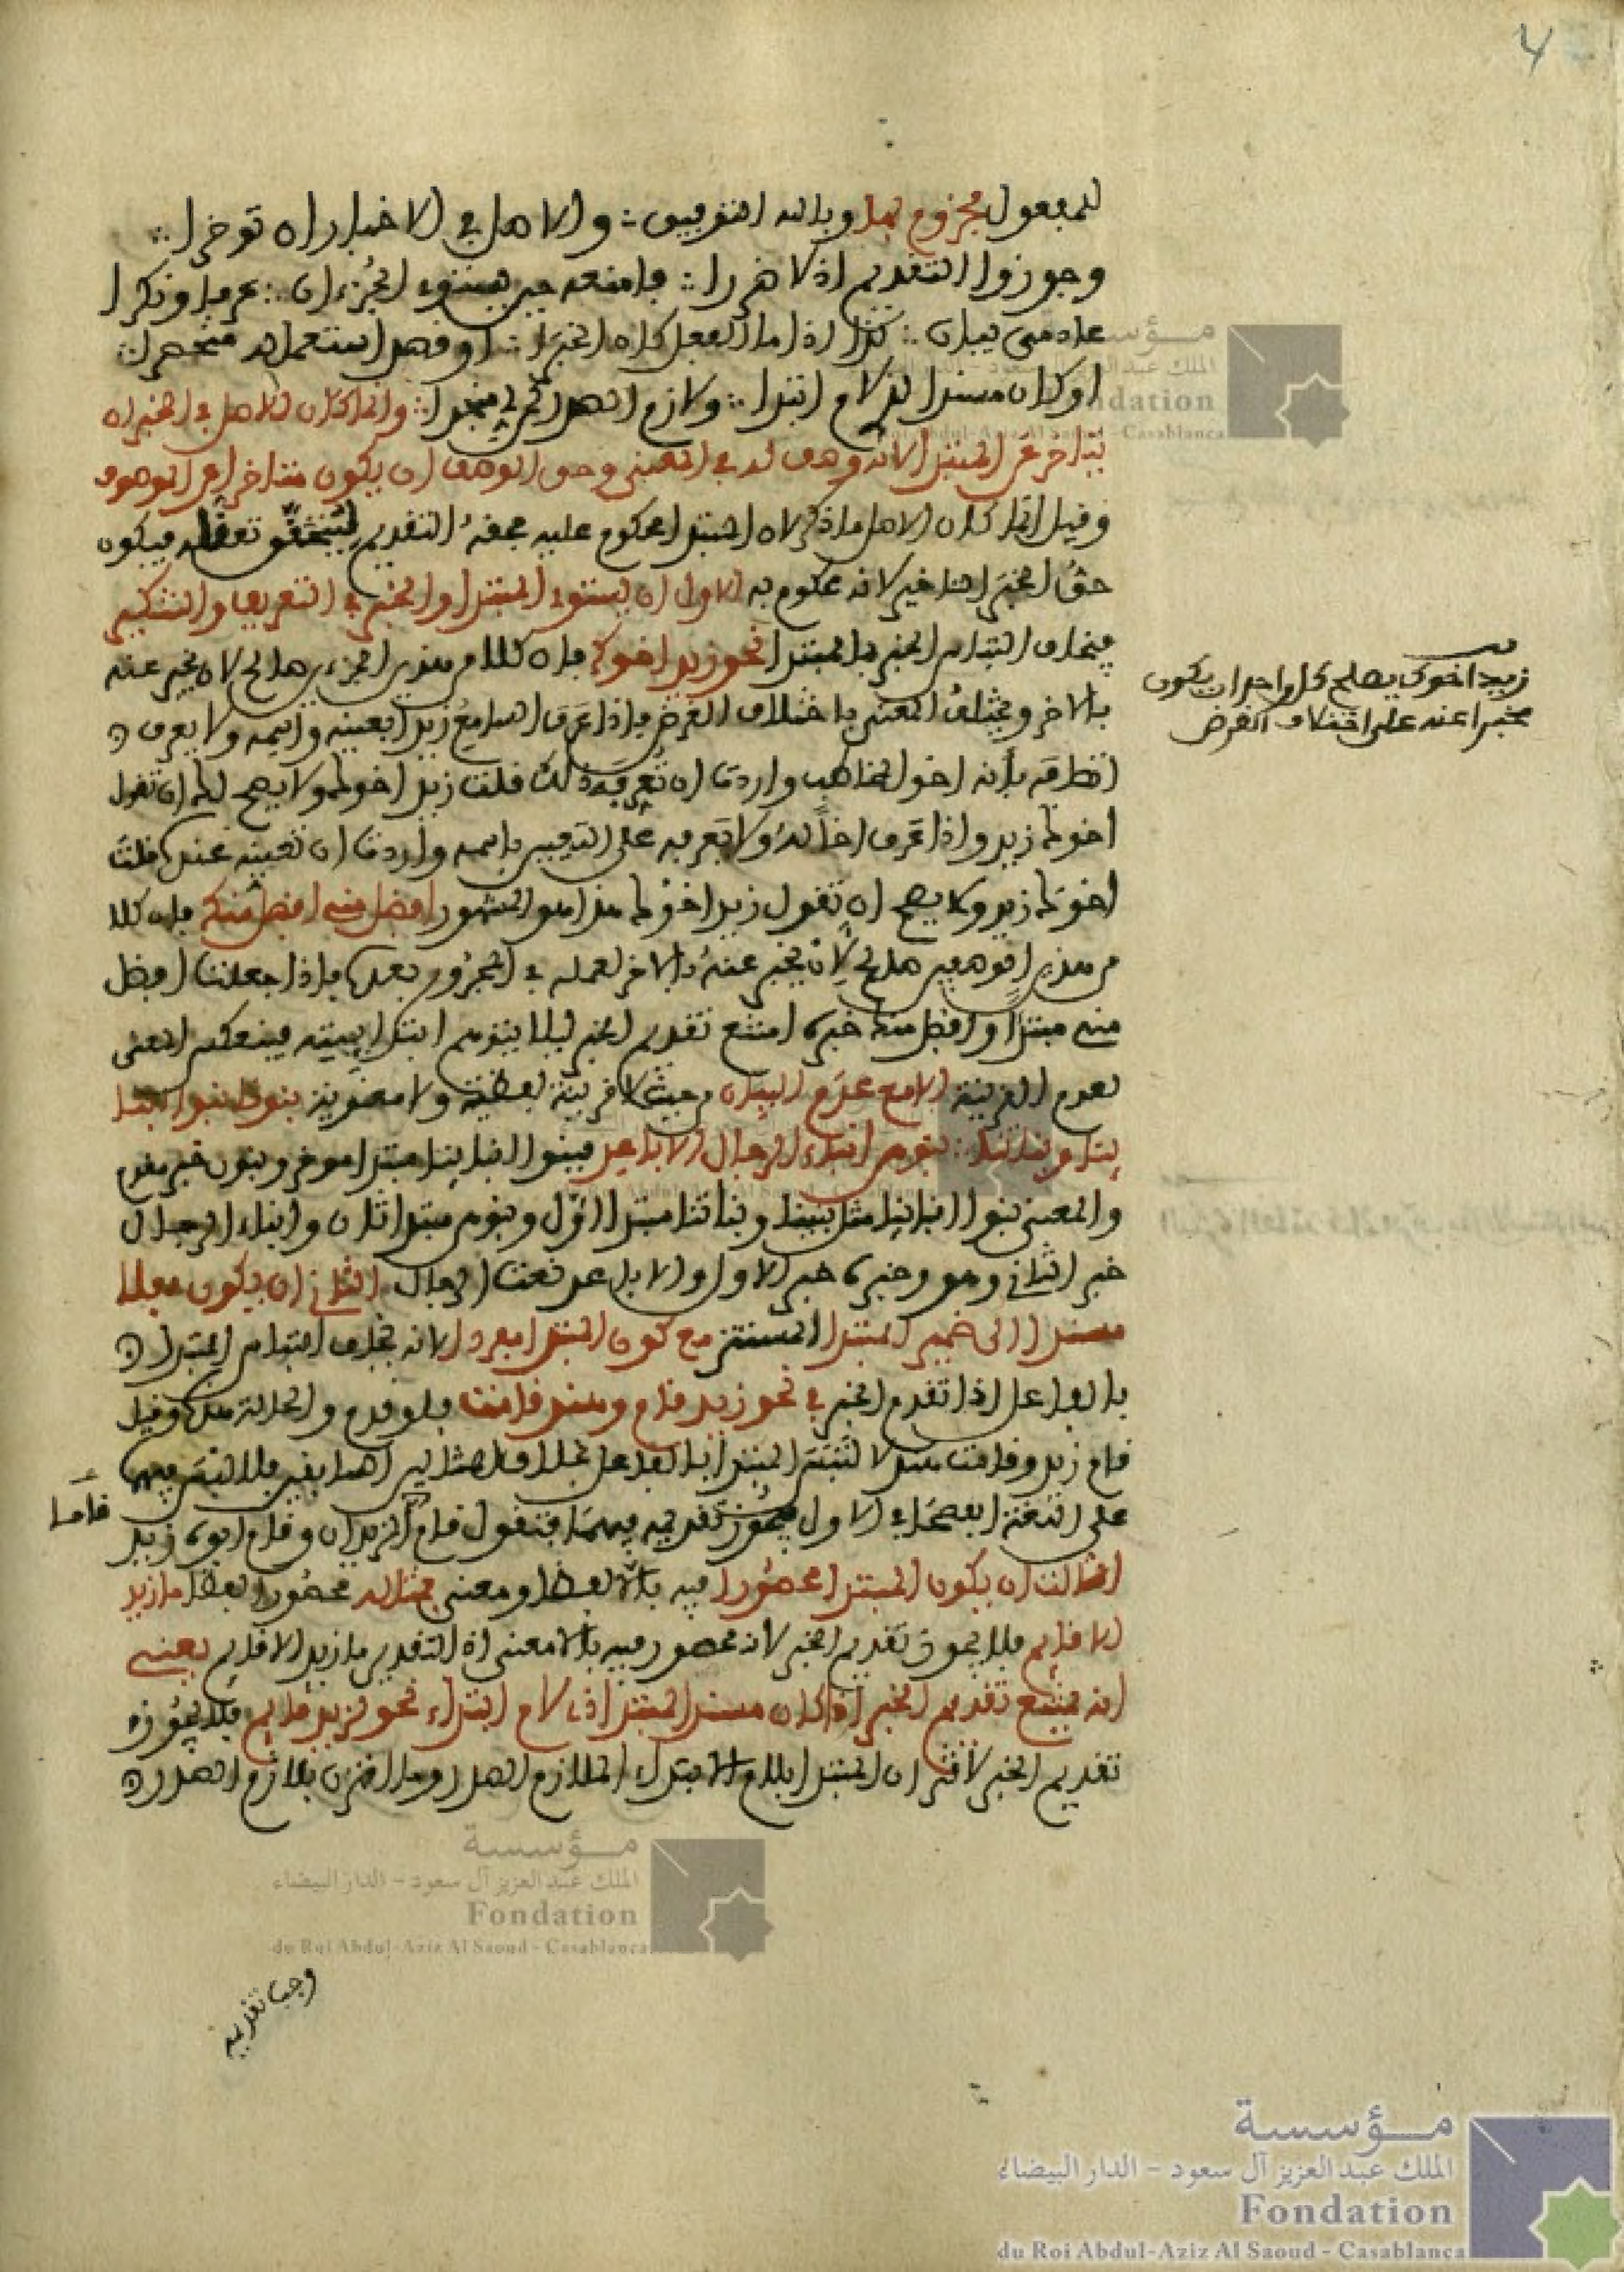 4
للمفعول مجزوم بما وبالله التوفيق ∴ والاصل في الاخبار ان توخرا ∴
وجوزوا التقديم اذ لا ضررا ∴ فامنعه حين يستوي الجزءان ∴ عرفا ونكرا
عادمي بيان ∴ كذا اذا ما الفعل كان الخبرا ∴ او قصد استعماله منحصرا ∴
او كان مسندا لذي لام ابتدا ∴ ولازم الصدر كمن لي منجدا ∴ وانما كان الاصل في الخبر ان
يتاخر عن المبتدا لانه وصف له في المعنى وحق الوصف ان يكون متاخرا عن الموصوف
وقيل انما كان الاصل ماذكر لان المبتدا محكوم عليه فحقه التقديم ليتحقق تعقله فيكون
حق الخبر التاخير لانه محكوم به الاول ان يستوي المبتدا والخبر في التعريف والتنكير
فيخاف التباس الخبر بالمبتدا نحو زيد اخوك فان كلا من هذين الجزءين صالح لان يخبر عنه
بالاخر ويختلف المعنى باختلاف الغرض فاذا عرف السامع زيدا بعينه واسمه ولا يعرف
اتصافه بأنه اخو المخاطب واردت ان تعرفه ذلك قلت زيد اخوك ولا يصح لك ان تقول
اخوك زيد واذا عرف اخا له ولا يعرفه على التعيين باسمه واردت ان تعينه عنده قلت
اخوك زيد ولا يصح ان تقول زيد اخوك هذا هو المشهور افضل مني افضل منك فان كلا
من هذين الوصفين صالح لان يخبر عنه بالاخر لعمله في المجرور بعده فاذا جعلت افضل
مني مبتدأ وافضل منك خبره امتنع تقديم الخبر ليلا يتوهم ابتدائيته فينعكس المعنى
لعدم القرينة الا مع عدم البيان من حيث لا قرينة لفظية ولا معنوية بنونا بنوا ابنا
ينا وبناتنا ∴ بنوهن ابناء الرجال الاباعد فبنوا ابناينا مبتدا موخر وبنونا خبر مقدم
والمعنى بنوا ابناينا مثل بنينا وبناتنا مبتدا اوّل وبنوهن مبتدا ثان وابناء الرجال
خبر الثاني وهو وخبره خبر الاول والاباعد نعت الرجال الثاني ان يكون فعلا
مسندا الى ضمير المبتدا المستتر مع كون المبتدا مفردا لانه يخاف التباس المبتدا
بالفاعل اذا تقدم الخبر في نحو زيد قام وهند قامت فلو قدم والحالة هذه وقيل
قام زيد وقامت هند لالتبس المبتدا بالفاعل بخلاف المثالين السابقين فلا لبس فيهما
على اللغة الفصحاء الاول فيجوز تقديمه فيهما فتقول قاما الزيدان وقام ابوه زيد
الثالث ان يكون المبتدا محصورا فيه بالا لفظا ومعنى مثاله محصورا لفظا ما زيد
الا قايم فلا يجوز تقديم الخبر لانه محصور فيه بالا معنى اذ التقدير ما زيد الا قايم يعني
انه يمتنع تقديم الخبر اذا كان مسند المبتدا ذي لام ابتداء نحو لزيد قايم فلا يجوز
تقديم الخبر لاقتران المبتدا بلام الابتداء الملازم الصدر وما اقترن بلازم الصدر
زيد اخوك يصلح كل واحد ان يكون
مخبرا عنه على اختلاف الغرض
قاما
وجب تقديمه
مؤسسة
الملك عبد العزيز آل سعود - الدار البيضاء
Fondation
du Roi Abdul-Aziz Al Saoud - Casablanca